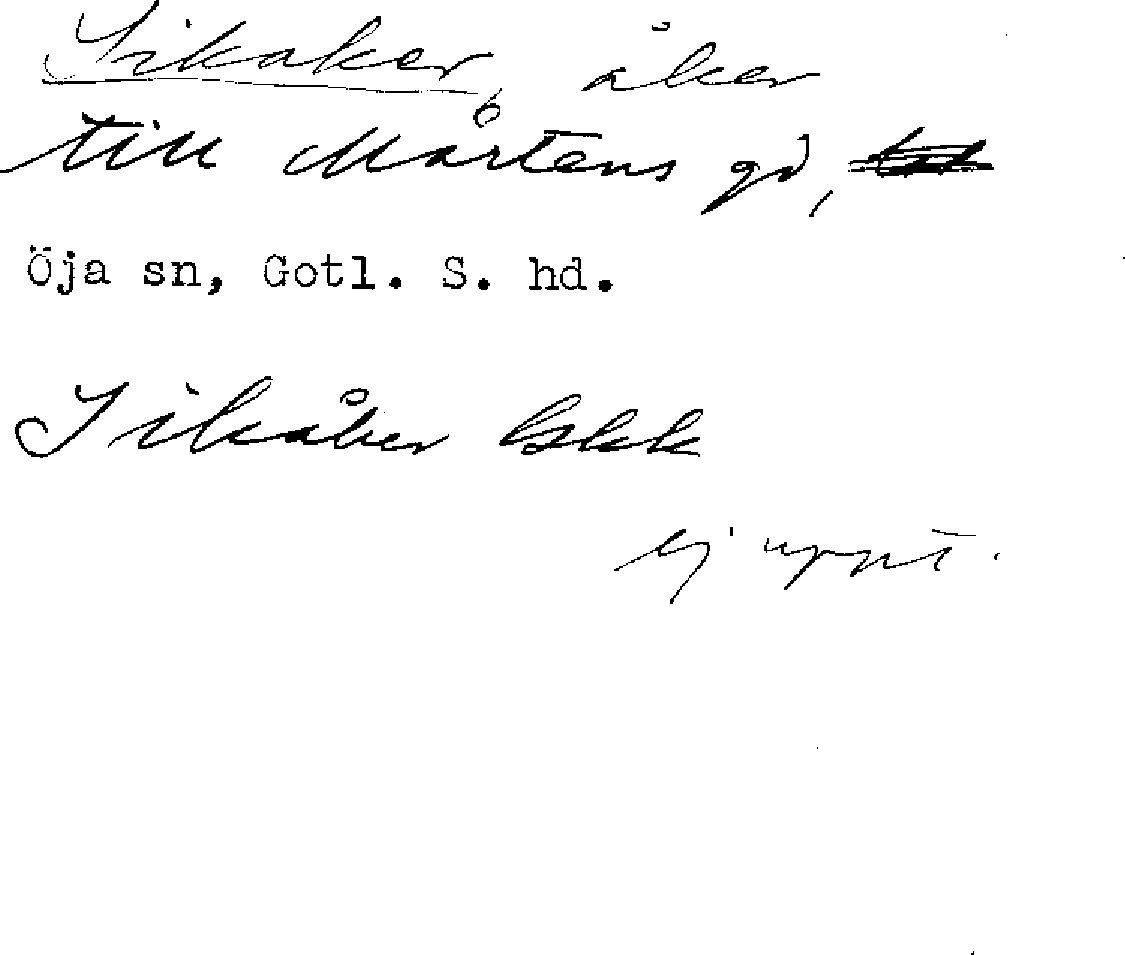 Sikaker, åker
till Mårtens gd,
Öja sn, Gotl. S. hd.
Sikåker Lskk
ej uppt.